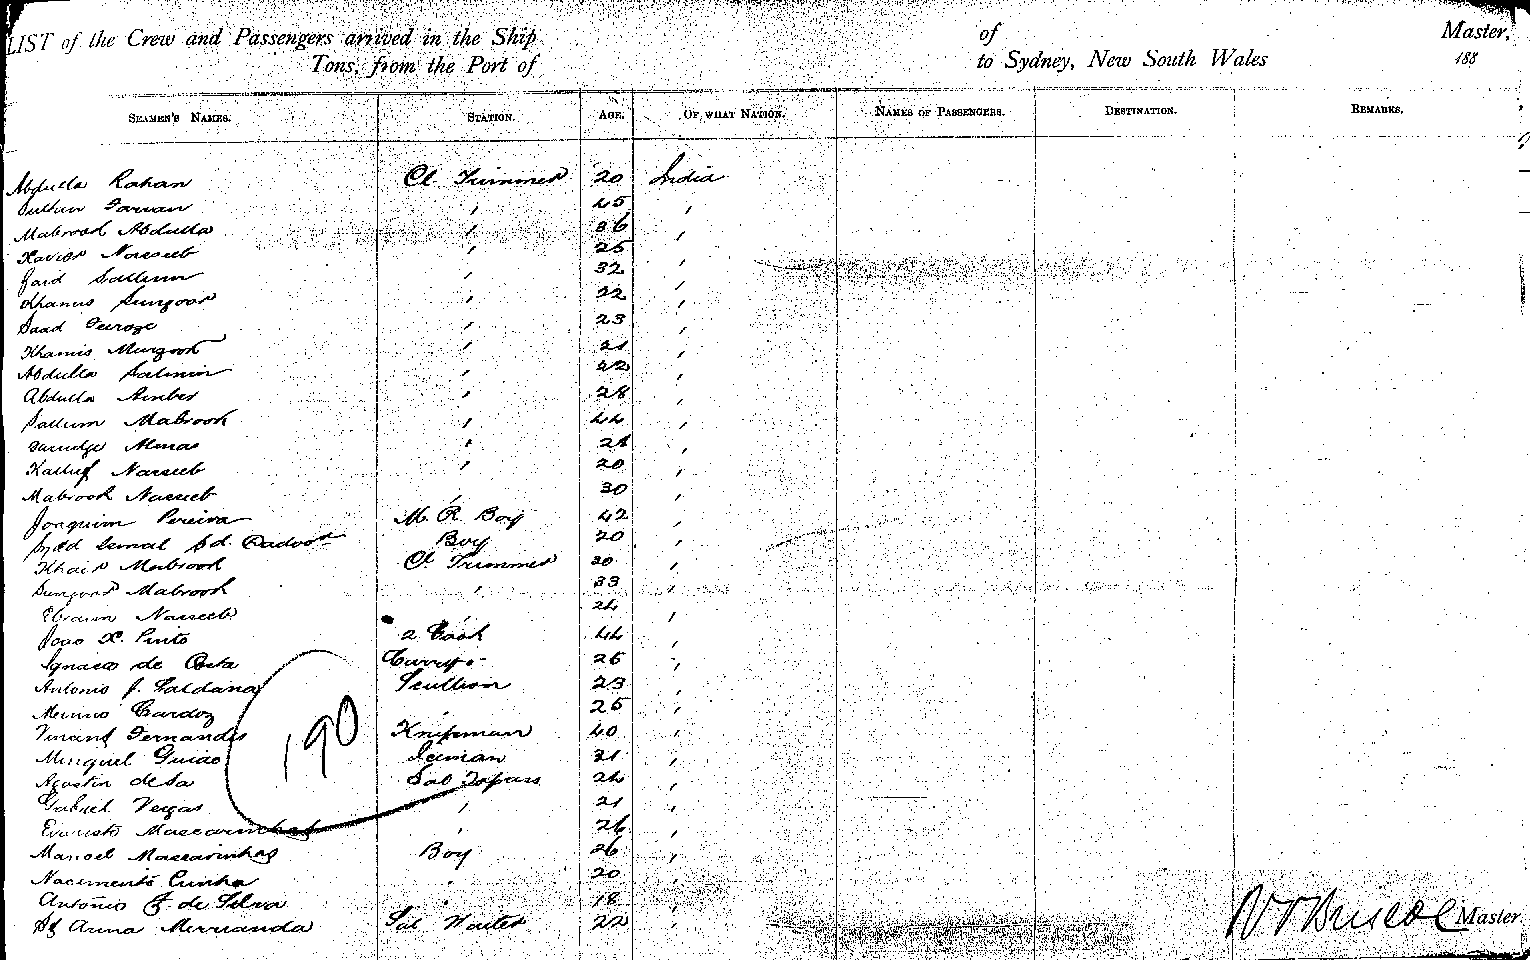 LIST of the Crew and Passengers arrived in the Ship of Master,
Tons, from the Port of to Sydney, New South Wales 188
SEAMEN'S NAMES. STATION. AGE. OF WHAT NATION. NAMES OF PASSENGERS. DESTINATION. REMARKS.
Abdulla Rahan Cl Trimmer 20 India
Farran ' 45 '
Mabrook Abdulla ' 36 '
Naseeb ' 25 '
Zaid Sallim ' 32 '
Khamis Sungoor ' 22 '
Saad Feroze ' 23 '
Khamis Murgook ' 21 '
Abdulla Salmin ' 22 '
Abdulla Amber ' 28 '
Sallum Mabrook ' 44 '
Almas ' 24 '
Kalluf Naseeb ' 20 '
Mabrook Naseeb ' 30 '
Joaquim Pereira M. R. Boy 42 '
Syed Sd. Boy 20 '
Khair Mabrook Cl Trimmer 30 '
Sungoor Mabrook ' 33 '
Naseeb ' 24 '
Joao X. Pinto 2 Cook 44 '
Ignacio de Costa Curry - 26 '
Antonio J. Saldana Scullion 23 '
Cardoz ' 25 '
Fernandes Knifeman 40 '
Minguel Iceman 31 '
190
Agostin de Sa Sal Topass 24 '
Gabriel Vegas ' 21 '
Evaristo Mascarinhas ' 26 '
Manoel Mascarinhas Boy 26 '
Nacimento Cunha ' 20 '
Antonio F. de Silva ' 18 '
Anna Merranda Sal Waiter 22 '
Briscoe Master